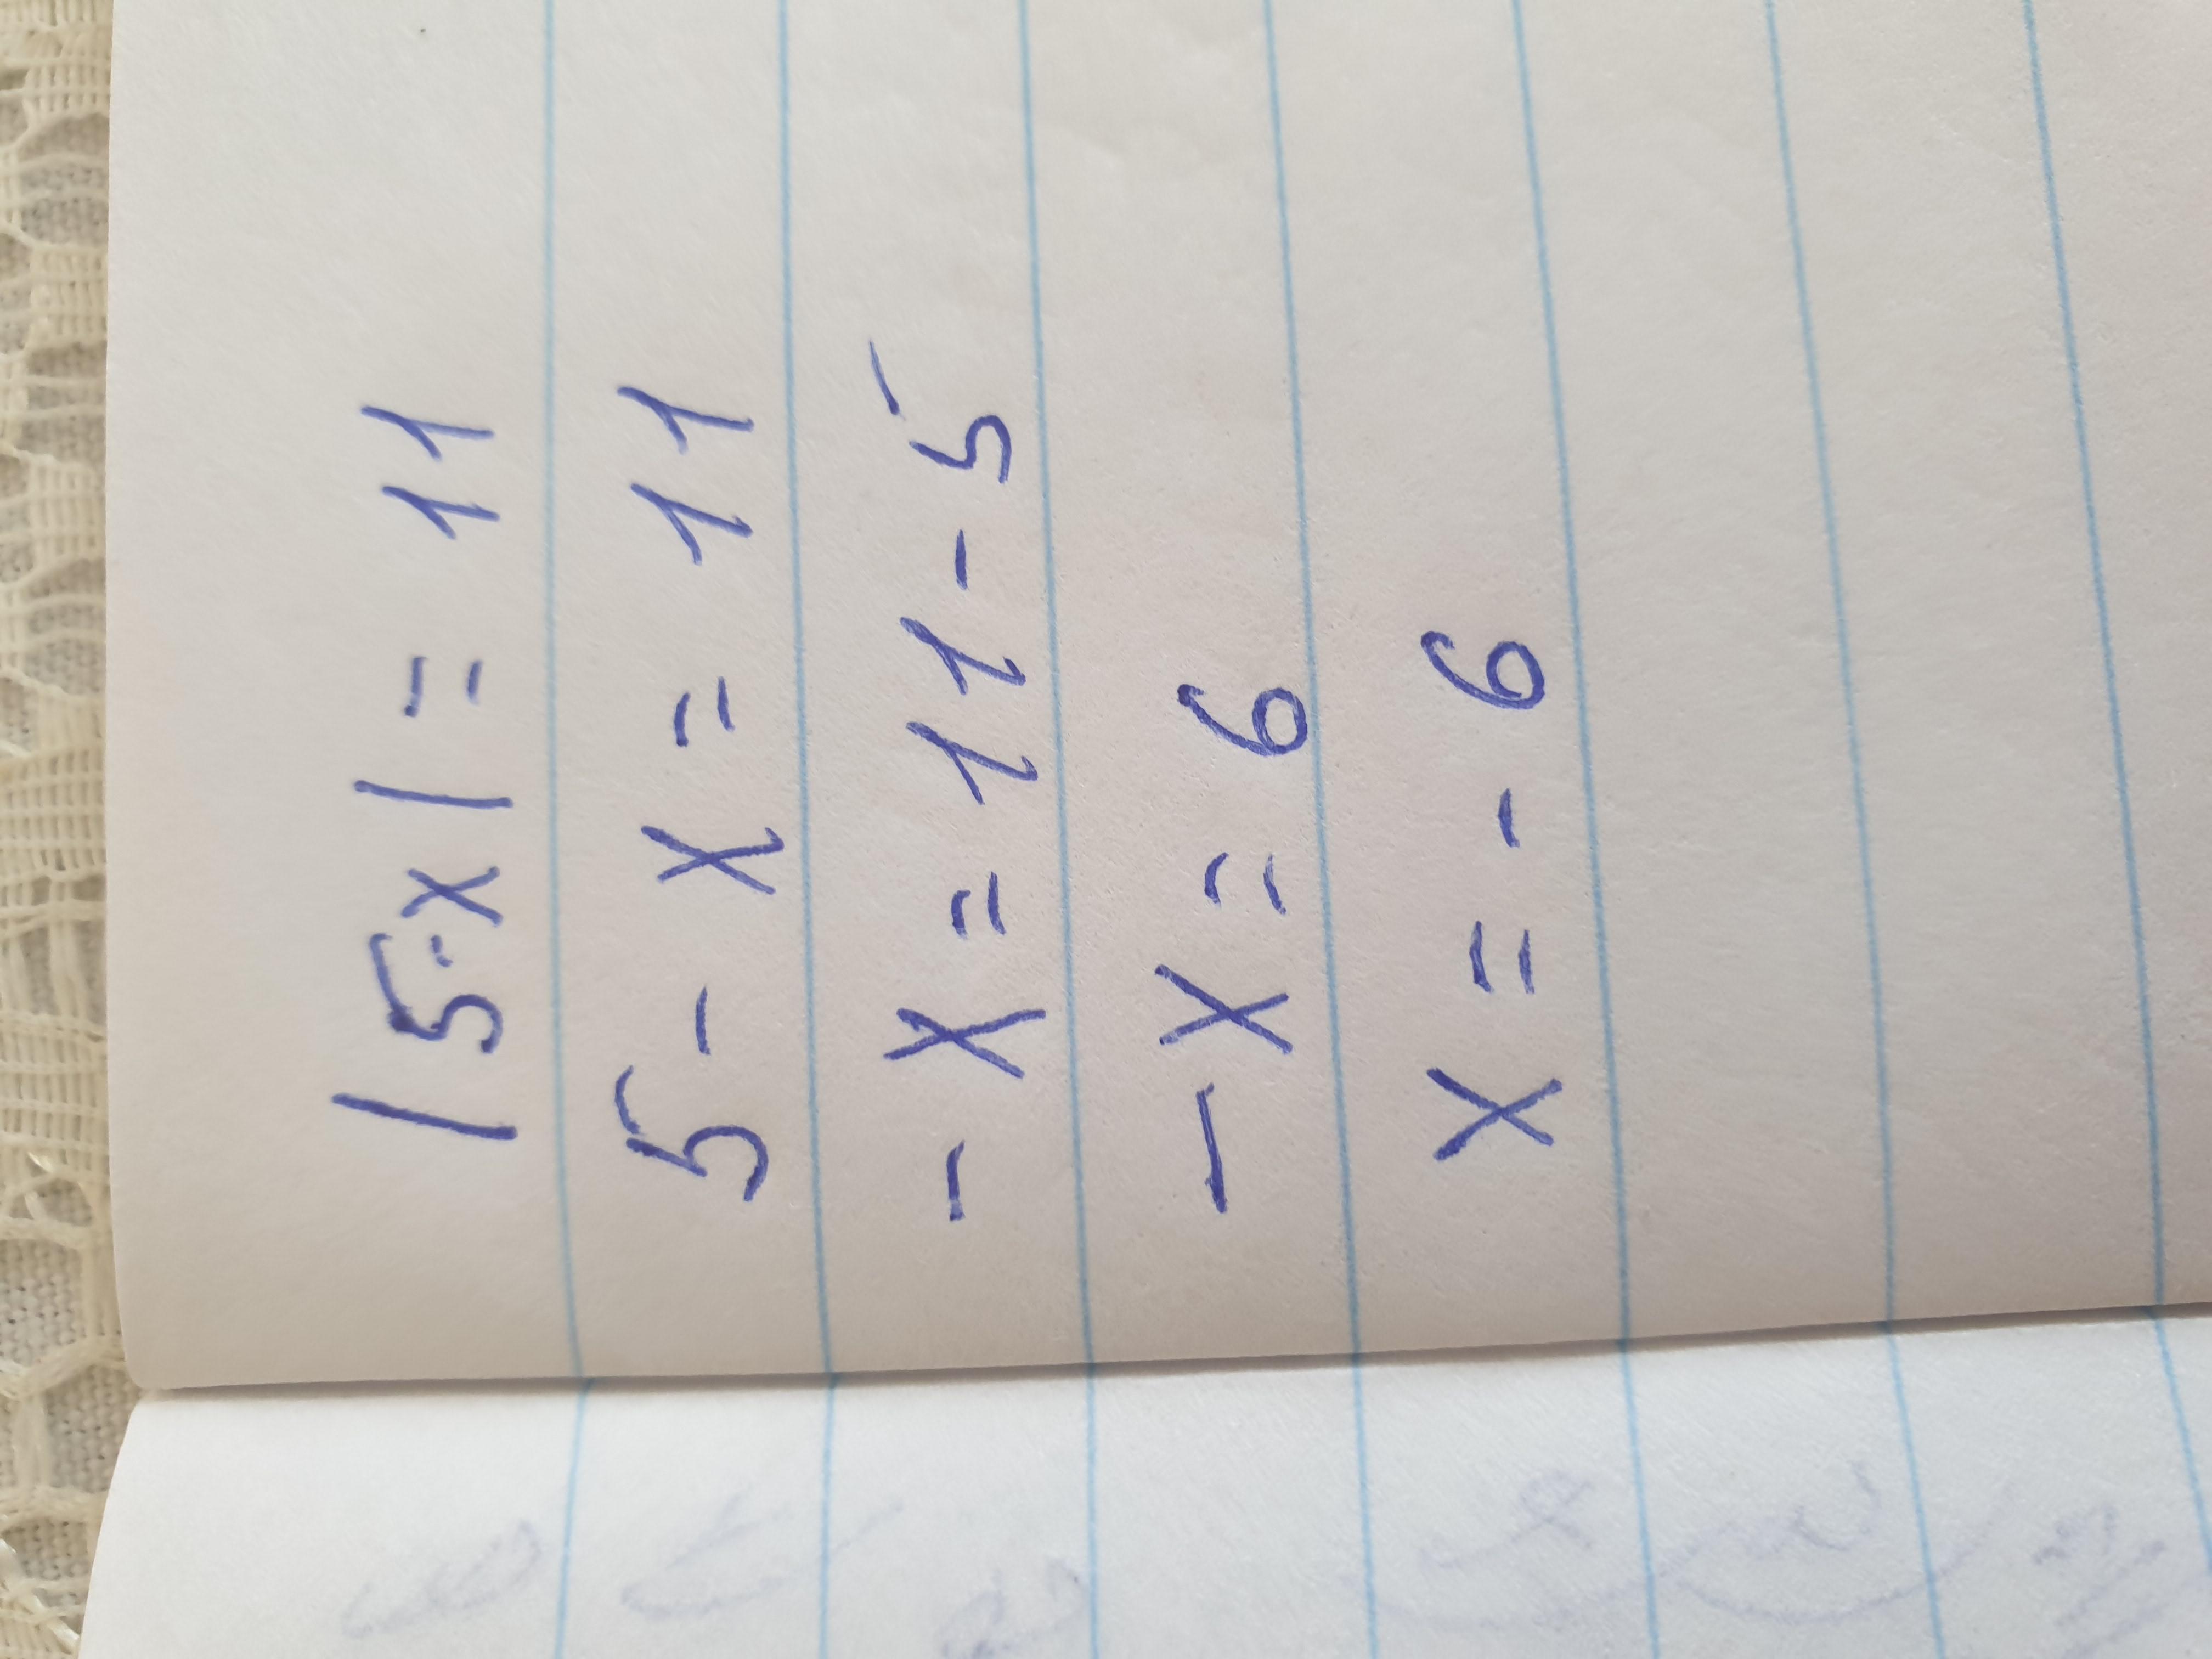 |5-x|= 11
5- x = 11
- x = 11-5
- x = 6
x = - 6